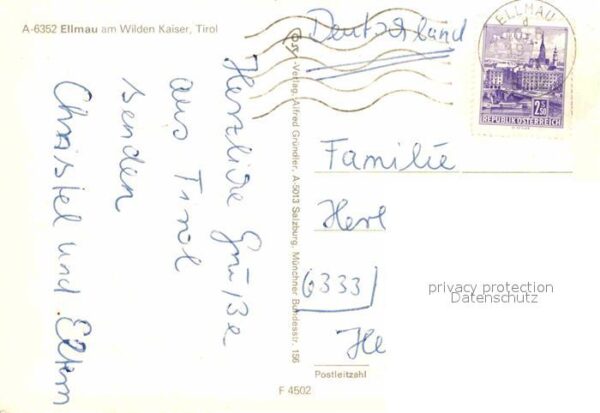 A-6352 Ellmau am Wilden Kaiser, Tirol
Herzliche Grüße
aus Tirol
senden
Christel und Eltern
-Verlag, Alfred Gründler, A-5013 Salzburg, Münchner Bundesstr. 156
Deutschland
ELLMAU
2.50
REPUBLIK ÖSTERREICH
Familie
6333
He
Postleitzahl
F 4502
privacy protection
Datenschutz